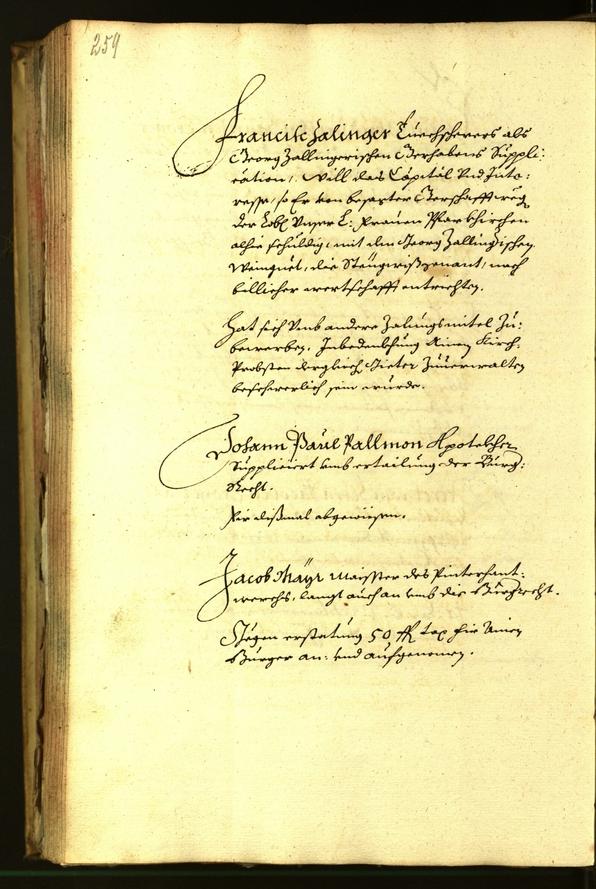 259
Francisc Zalinger Tuechscherers als
Georg Zallingerischen Gerhabens Suppli:
cation, will das Capital Vnd Inte:
resse, so Er von besagter Gerhafft weg
der Lobl Vnser L: Frauen Pfarkhirchen
alhie schuldig, mit den Georg Zallingischen
Weinguet, die genant, nach
billicher wertschafft entrichten.
Hat sich vmb andere Zalungsmitel Zu:
bewerben. Inbedenkhung Ainen Kirch
Probsten dergleich Gieter Zuuerwalten
beschwerlich sein wurde.
Johann Paul Pallmon Apotekher
Suppliciert vmb ertailung der Burg:
Recht.
Für dißmal abgewisen.
Jacob Mayr Maister des Pinterhant:
werchs, langt auch an vmb die Burgrecht.
Gegen erstatung 50 ff tax für Ainen
Burger an: vnd aufgenomen.